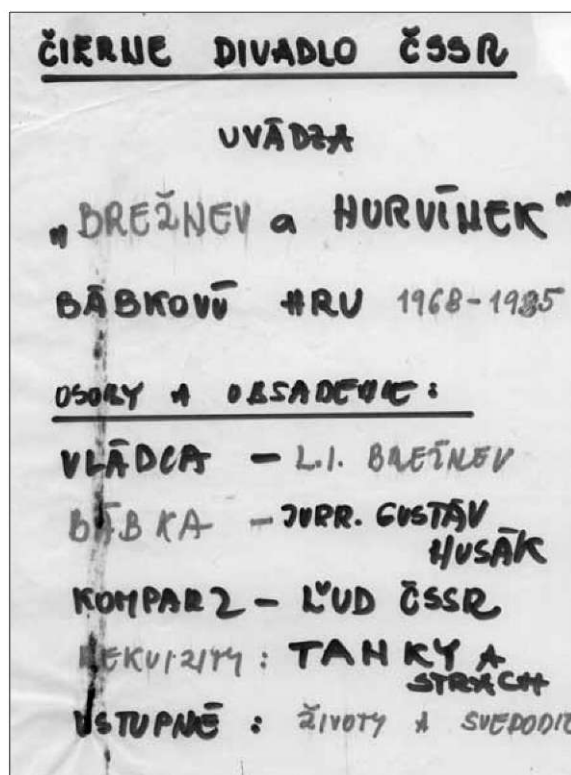 ČIERNE DIVADLO ČSSR
UVÁDZA
„BREŽNEV a HURVÍNEK"
BÁBKOVÚ HRU 1968-1985
OSOBY A OBSADENIE:
VLÁDCA - L.I. BREŽNEV
BÁBKA - JUDR. GUSTÁV
HUSÁK
KOMPARZ - ĽUD ČSSR
REKVIZITY: TANKY A
STRACH
VSTUPNÉ: ŽIVOTY A